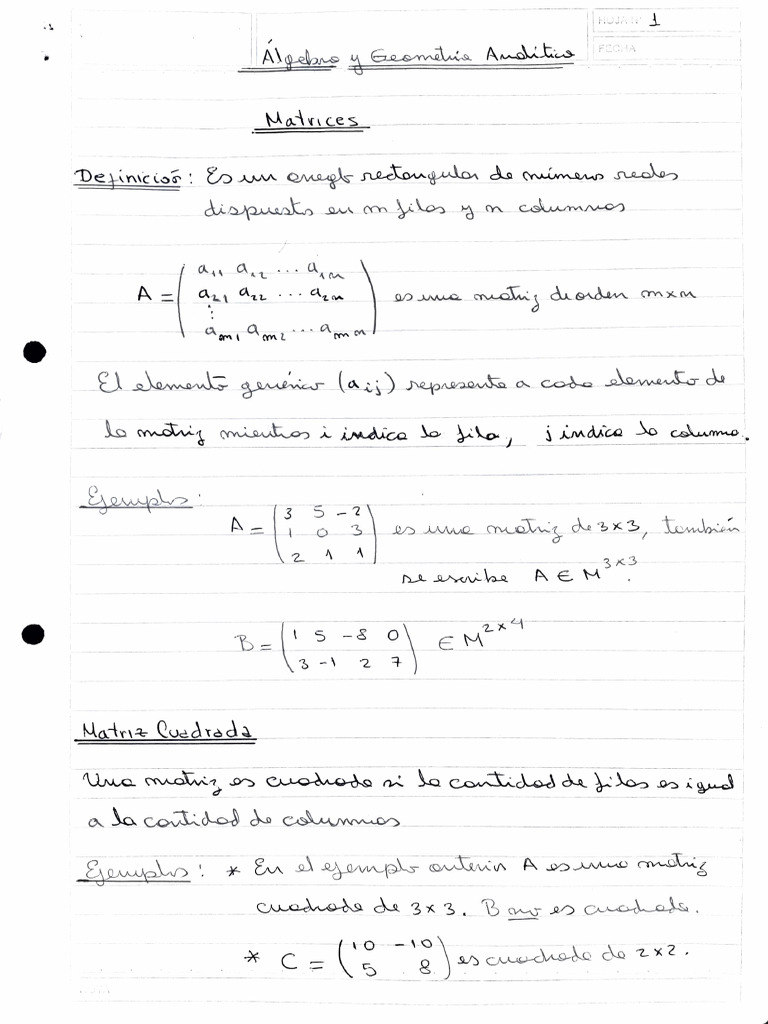 HOJA Nº 1
FECHA
Álgebra y Geometría Analítica
Matrices
Definición: Es un arreglo rectangular de números reales
dispuestos en m filas y n columnas
A = ( a11 a12 ... a1n
a21 a22 ... a2n
⋮
am1 am2 ... amn ) es una matriz de orden m×n
El elemento genérico (aij) representa a cada elemento de
la matriz mientras i indica la fila, j indica la columna.
Ejemplos:
A = ( 3 5 -2
1 0 3
2 1 1 ) es una matriz de 3×3, también
se escribe A ∈ M^3×3.
B = ( 1 5 -8 0
3 -1 2 7 ) ∈ M^2×4
Matriz Cuadrada
Una matriz es cuadrada si la cantidad de filas es igual
a la cantidad de columnas
Ejemplos: * En el ejemplo anterior A es una matriz
cuadrada de 3×3. B no es cuadrada.
* C = ( 10 -10
5 8 ) es cuadrada de 2×2.